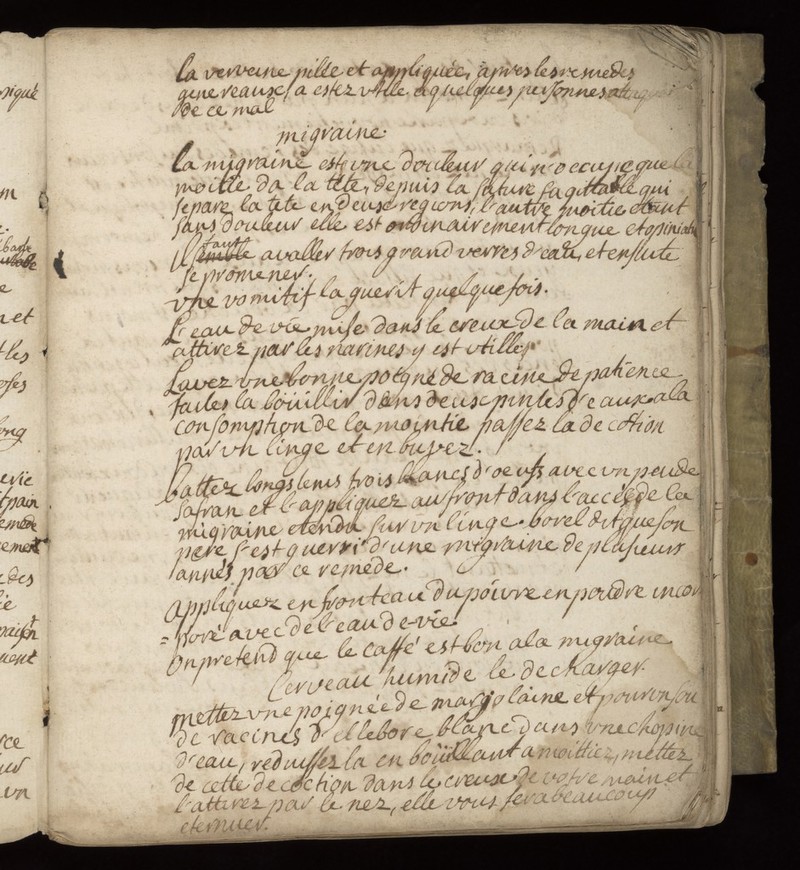 la verveine pillée et appliquée, apres les remedes
genereaux, a estez utille a quelques personnes
de ce mal
migraine.
La migraine est vne douleur qui n'occupe que la
moitie da la tete, depuis la suture sagittalle qui
separe la tete en deux regions, l'autre moitie etant
sans douleur elle est ordinairement longue et opiniatre
Il faut avaller trois grand verres d'eau, et ensuite
se promener.
vne vomitif la guerit quelquefois.
L'eau de vie mise dans le creux de la main et
attirez par les narines y est utille
Lavez vne bonne poigné de racine de patience
faites la boüillir dans deux pintes d'eaux a la
consomption de la mointie passez la decoction
par vn linge et en buvez.
battez longstems trois blancs d'oeufs avec vn peu de
safran et l'appliquez au front dans l'acces de la
migraine etendu sur vn linge. borel dit que son
pere s'est guerri d'une migraine de plusieurs
années par ce remede.
appliquez en fronteau du poivre en poudre incor
=poré avec de l'eau de vie
On pretend que le caffé est bon a la migraine
Cerveau humide le decharger.
mettez vne poignée de marjolaine et pour un sou
de racines d'ellebore blanc dans vne chopine
d'eau, reduissez la en boüillant a moittiez, mettez
de cette decoction dans le creux de votre main et
l'attirez par le nez, elle vous fera beaucoup
eternuer.